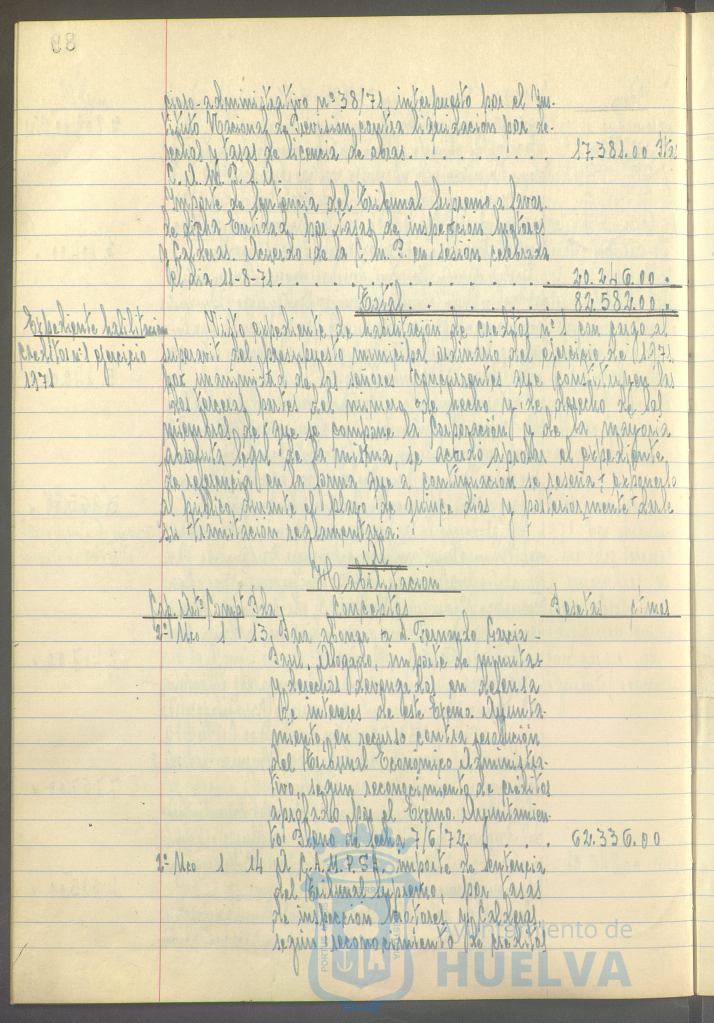 89
cioso-administrativo nº 38/71, interpuesto por el Ins-
tituto Nacional de Previsión, contra liquidación por de-
rechos y tasas de licencia de obras . . . . . . . . . 17.381.00 Ptas
C. A. M. P. S. A.
Importe de sentencia del Tribunal Supremo, a favor
de dicha Entidad, por tasas de inspección Motores
y Calderas. Acuerdo de la C. M. P. en sesión celebrada
el día 11-8-71 . . . . . . . . . 20.246.00 "
Total . . . . . . . . . 82.582.00 "
Expediente habilitación
creditos nº 1 ejercicio
1971
Visto expediente de habilitación de creditos nº 1 con cargo al
superavit del presupuesto municipal ordinario del ejercicio de 1971,
por unanimidad de los señores concurrentes que constituyen las
dos terceras partes del número de hecho y de derecho de los
miembros de que se compone la Corporación y de la mayoría
absoluta legal de la misma, se acordó aprobar el expediente
de referencia en la forma que a continuación se reseña y exponerlo
al público durante el plazo de quince días y posteriormente darle
su tramitación reglamentaria:
Habilitación
Cap. Artº Conpt Pda. Conceptos Pesetas ctmos
2º Uco 1 13, Para abonar a D. Fernando Garcia-
Abogado, importe de minutas
y derechos devengados en defensa
de intereses de este Excmo. Ayunta-
miento, en recurso contra resolución
del Tribunal Económico Administra-
tivo, segun reconocimiento de créditos
aprobado por el Excmo. Ayuntamien-
to Pleno de fecha 7/6/72 . . . . 62.336.00
2º Uco 1 14 A C.A.M.P.S.A. importe de sentencia
del Tribunal Supremo, por tasas
de inspección Motores y Calderas,
segun reconocimiento de créditos
Ayuntamiento de
HUELVA